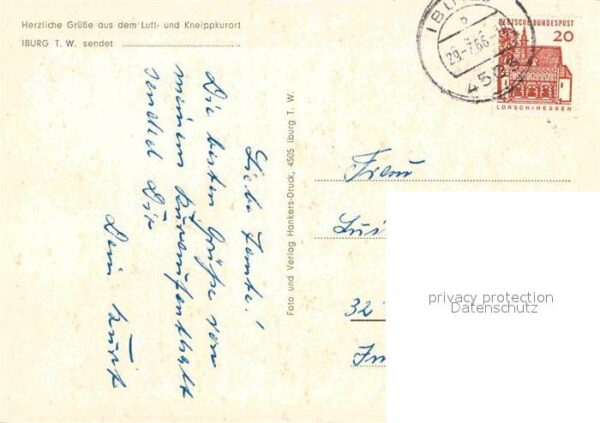 Herzliche Grüße aus dem Luft- und Kneippkurort
IBURG T. W. sendet
Liebe Tante!
Die besten Grüße von
meinem Kuraufenthalt
sendet Dir
Dein Kurt
Foto und Verlag Hankers-Druck, 4505 Iburg T. W.
IBURG
29.-7.66
4505
DEUTSCHE BUNDESPOST
20
LORSCH/HESSEN
Frau
Lui
32
privacy protection
Datenschutz